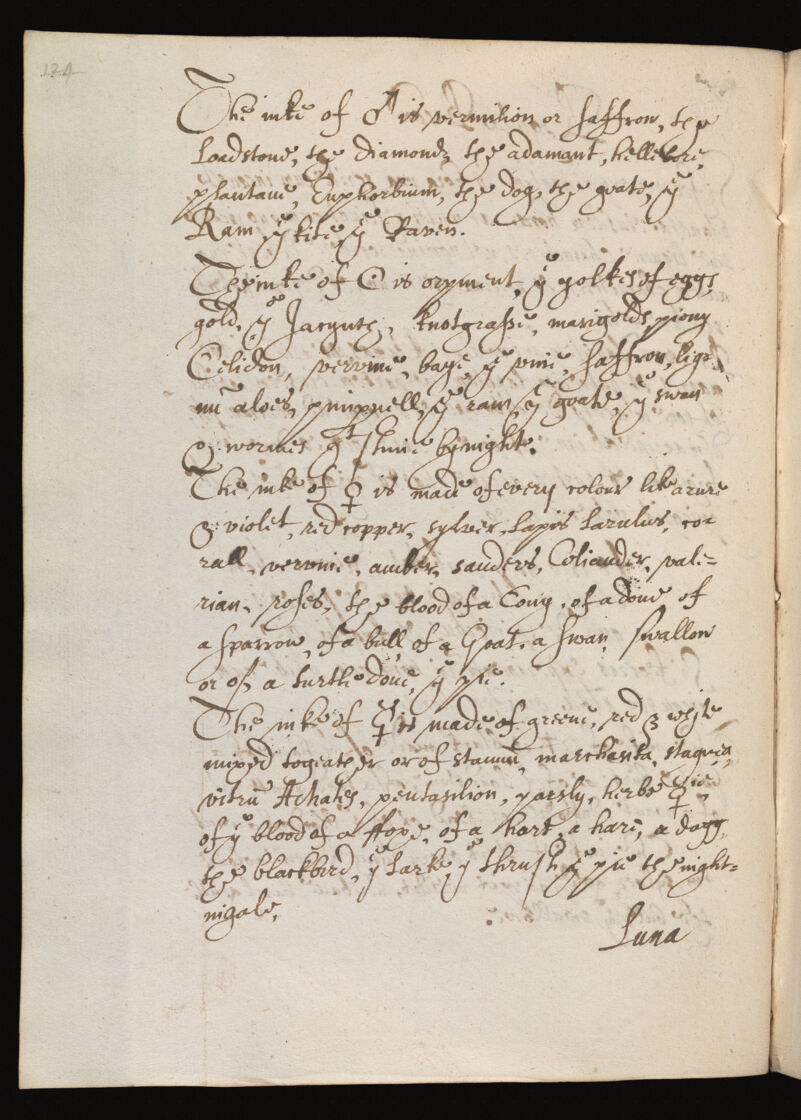 124
The inke of ♂ is vermilion or saffron, the
Loadstone, the diamond, the adamant, hellebore,
plantane, Euphorbium, the dog, the goate, yͤ
Ram yͤ kite yͤ Raven.
The inke of ☉ is orpment, yͤ yolkes of eggs,
gold, yͤ Jacynth, knotgrasse, marigolds, piony
Celidon, vervine, baye, yͤ vine, saffron, lig-
nū aloes, pimpnell, yͤ ram, yͤ goate, yͤ swan
& wormes yͭ shine by night.
The inke of ♀ is made of every colour like azure
& violet, red copper, sylver, Lapis Lazulus, co-
rall, vervine, amber, sanders, Coliander, vale=
rian, roses, the blood of a Cony, of a dove of
a sparrow, of a bull, of a Goat, a swan, swallow
or of a turtle dove, yͤ pie.
The inke of ☿ is made of greene, red & white
mixed togeather or of stannū, marchasita,
vitrū Achates, pentafilion, parsly, herbe
of yͤ blood of a ffoxe, of a hart, a hare, a dogg,
the blackbird, yͤ Larke, yͤ thrush, yͤ pie the night=
ingale,
Luna